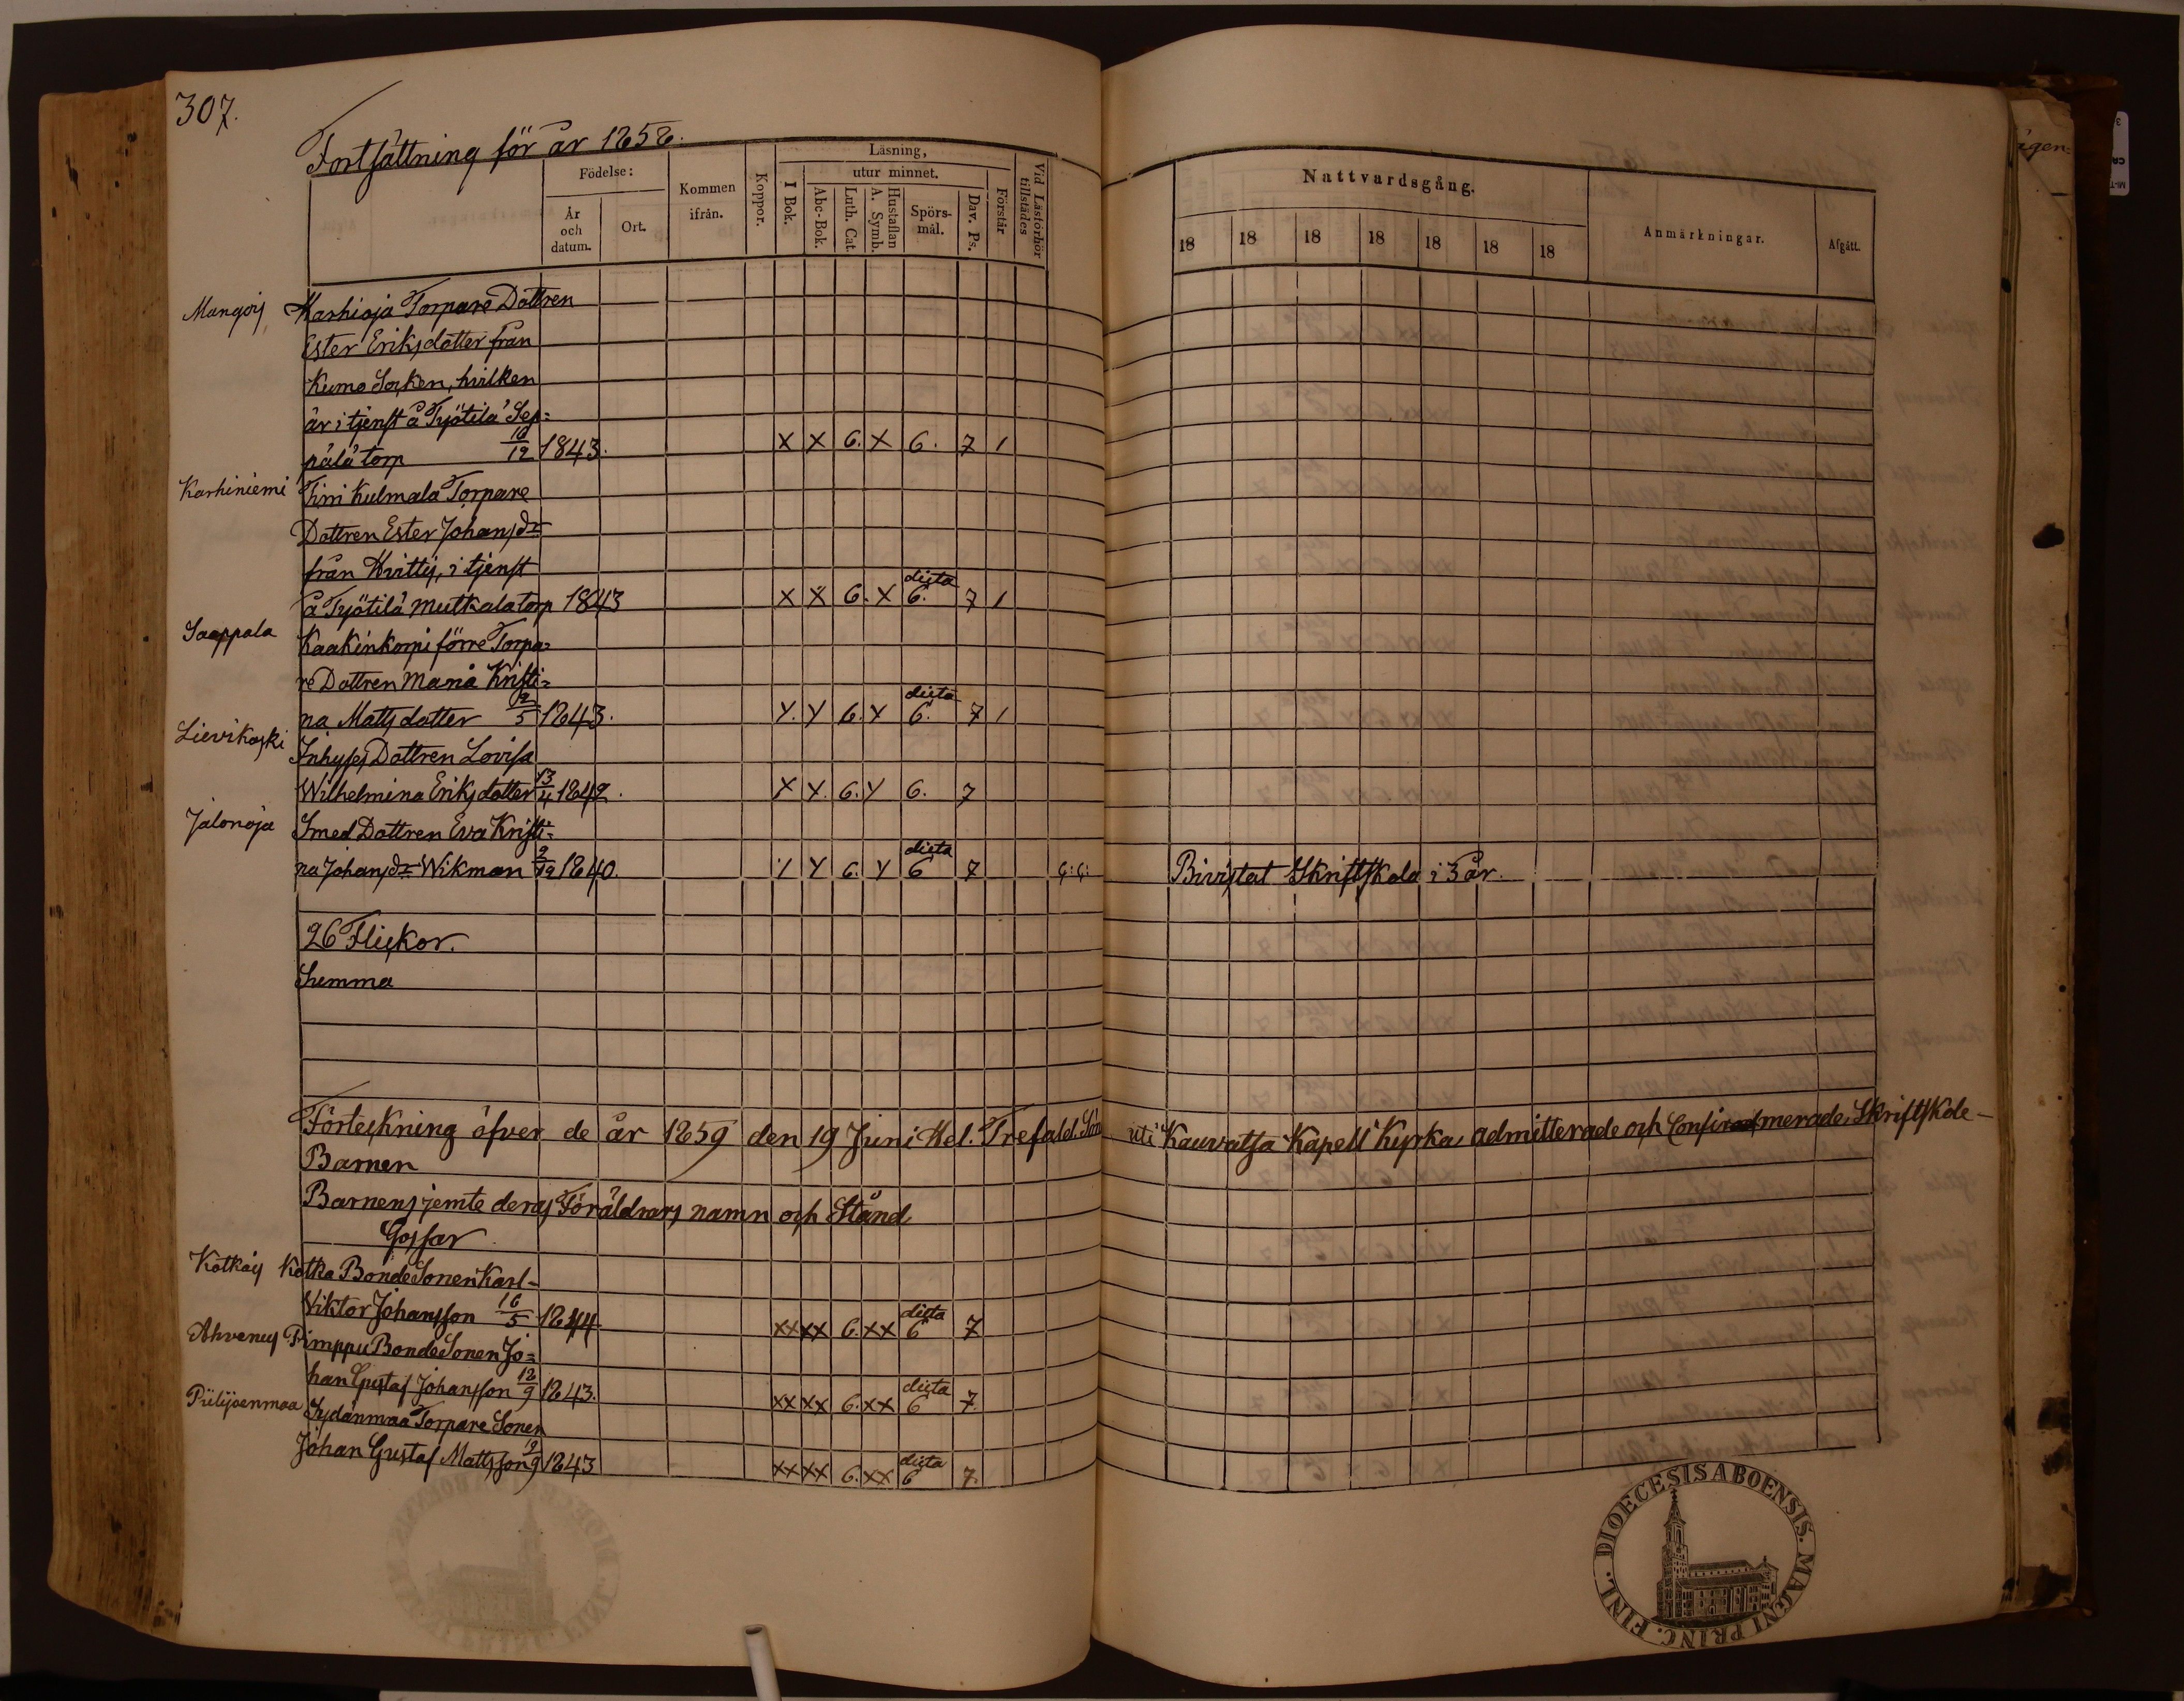 307.
Fortsättning för år 1858.
Födelse:
År och datum.
Ort.
Kommen ifrån.
Koppor.
Läsning,
utur minnet.
I Bok.
Abc-Bok.
Luth. Cat.
Hustaflan A. Symb.
Spörs-mål.
Dav. Ps.
Förstår
Vid Läsförhör tillstädes
Nattvardsgång.
18 18 18 18 18 18 18
Anmärkningar.
Afgått.
Mangois Karhioja Torpare Dottren
Ester Eriksdotter från
Kumo Socken, hvilken
är i tjenst å Työtilä Sep=
pälä torp 10/12 1843. X X 6. X 6. 7 1
Karhiniemi Tirri Kulmala Torpare
Dottren Ester Johansdr
från Hvittis, i tjenst
å Työtilä Mutkala torp 1843 X X 6. X dicta 6. 7 1
Saappala Kaakinkorpi förre Torpa=
re Dottren Maria Kristi=
na Matsdotter 2/5 1843. Y. Y 6. Y dicta 6. 7 1
Lievikoski Inhyses Dottren Lovisa
Wilhelmina Eriksdotter 13/4 1842. X Y. 6. Y 6. 7
Jalonoja Smed Dottren Eva Kristi=
na Johansdr Wikman 2/12 1840. Y Y 6. Y dicta 6 7 Ç:Ç: Bivistat Skriftskola i 3 år.
26 Flickor.
Summa
Förteckning öfver de år 1859 den 19 Juni Hel. Trefald. Sön uti Kauvatsa Kapell Kyrka admitterade och Confirmerade Skriftskole-
Barnen
Barnens jemte deras Föräldrars namn och Stånd
Gossar
Kotkais Kotka Bonde Sonen Karl-
Viktor Johansson 16/5 1844. XX XX 6. XX dicta 6 7
Ahvenus Pimppu Bonde Sonen Jo=
han Gustaf Johansson 12/9 1843. XX XX 6. XX dicta 6 7.
Piilijoenmaa Sydänmaa Torpare Sonen
Johan Gustaf Mattsson 19/9 1843 XX XX 6. XX dicta 6 7.
DIOECESIS ABOENSIS. MAGNI PRINC. FINL.